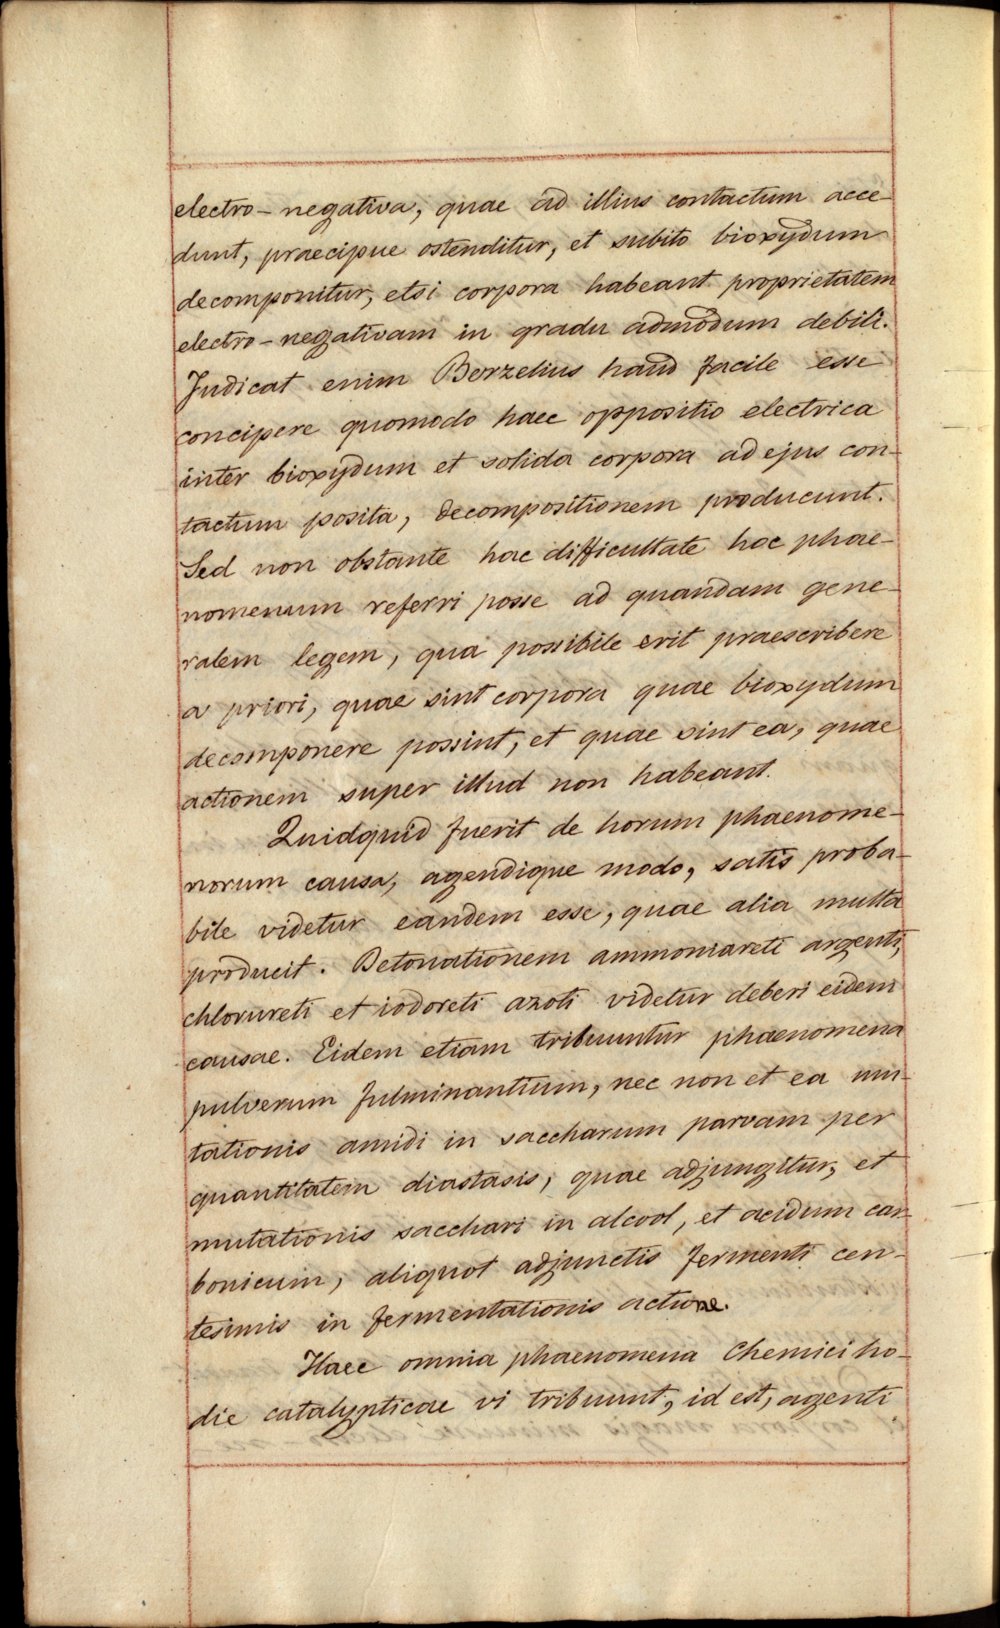 electro-negativa, quae ad illius contactum acce-
dunt, praecipue ostenditur, et subito bioxydum
decomponitur, etsi corpora habeant proprietatem
electro-negativam in gradu admodum debili.
Judicat enim Berzelius haud facile esse
concipere quomodo haec oppositio electrica
inter bioxydum et solida corpora ad ejus con-
tactum posita, decompositionem producunt.
Sed non obstante hac difficultate hoc phae-
nomenum referri posse ad quandam gene-
ralem legem, qua possibile erit praescribere
a priori, quae sint corpora quae bioxydum
decomponere possint, et quae sint ea, quae
actionem super illud non habeant.
Quidquid fuerit de horum phaenome-
norum causa, agendique modo, satis proba-
bile videtur eandem esse, quae alia multa
producit. Detonationem ammoniareti argenti,
chlorureti et iodoreti azoti videtur deberi eidem
causae. Eidem etiam tribuuntur phaenomena
pulverum fulminantium, nec non et ea mu-
tationis amidi in saccharum parvam per
quantitatem diastasis, quae adjungitur, et
mutationis sacchari in alcool, et acidum car-
bonicum, aliquot adjunctis fermenti cen-
tesimis in fermentationis actione.
Haec omnia phaenomena Chemici ho-
die catalypticae vi tribuunt, id est, agenti